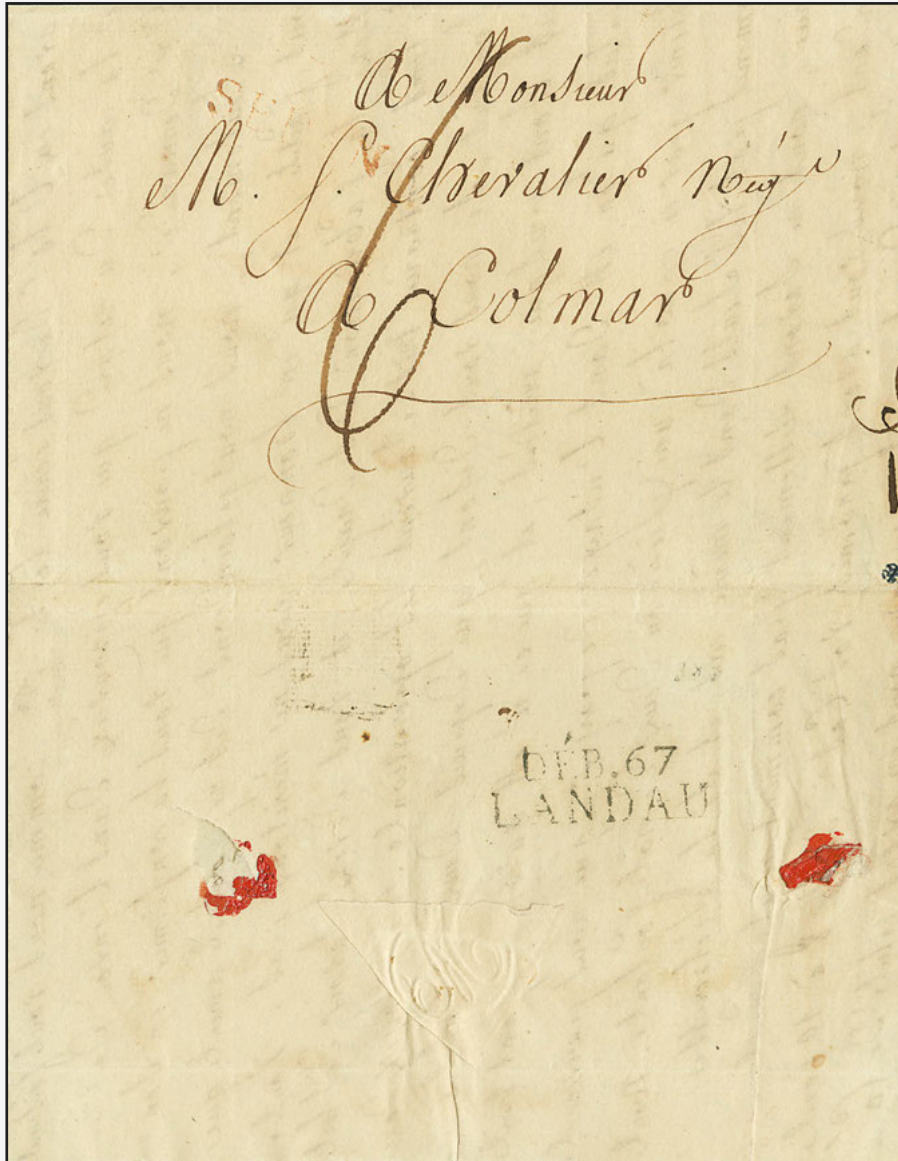 A Monsieur
M. S. Chevalier Nég
A Colmar
6
DÉB.67
LANDAU